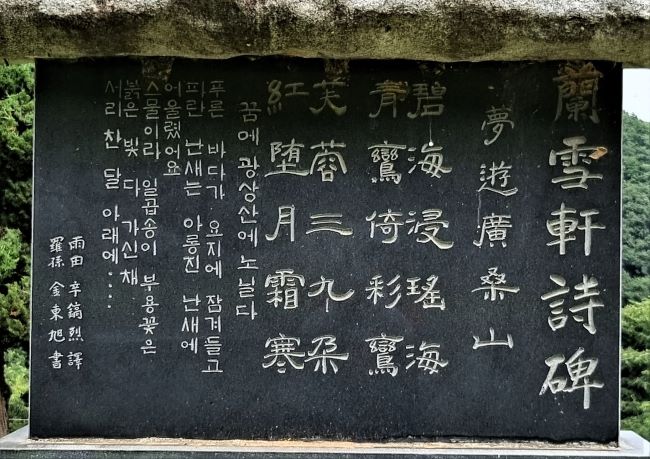 蘭雪軒詩碑
夢遊廣桑山
碧海浸瑤海
青鸞倚彩鸞
芙蓉三九朶
紅堕月霜寒
꿈에 광상산에 노닐다
푸른 바다가 요지에 잠겨들고
파란 난새는 아롱진 난새에
어울렸어요
스물이라 일곱송이 부용꽃은
붉은 빛 다 가신채
서리찬 달 아래에····
雨田 辛鎬烈 譯
羅孫 金東旭 書